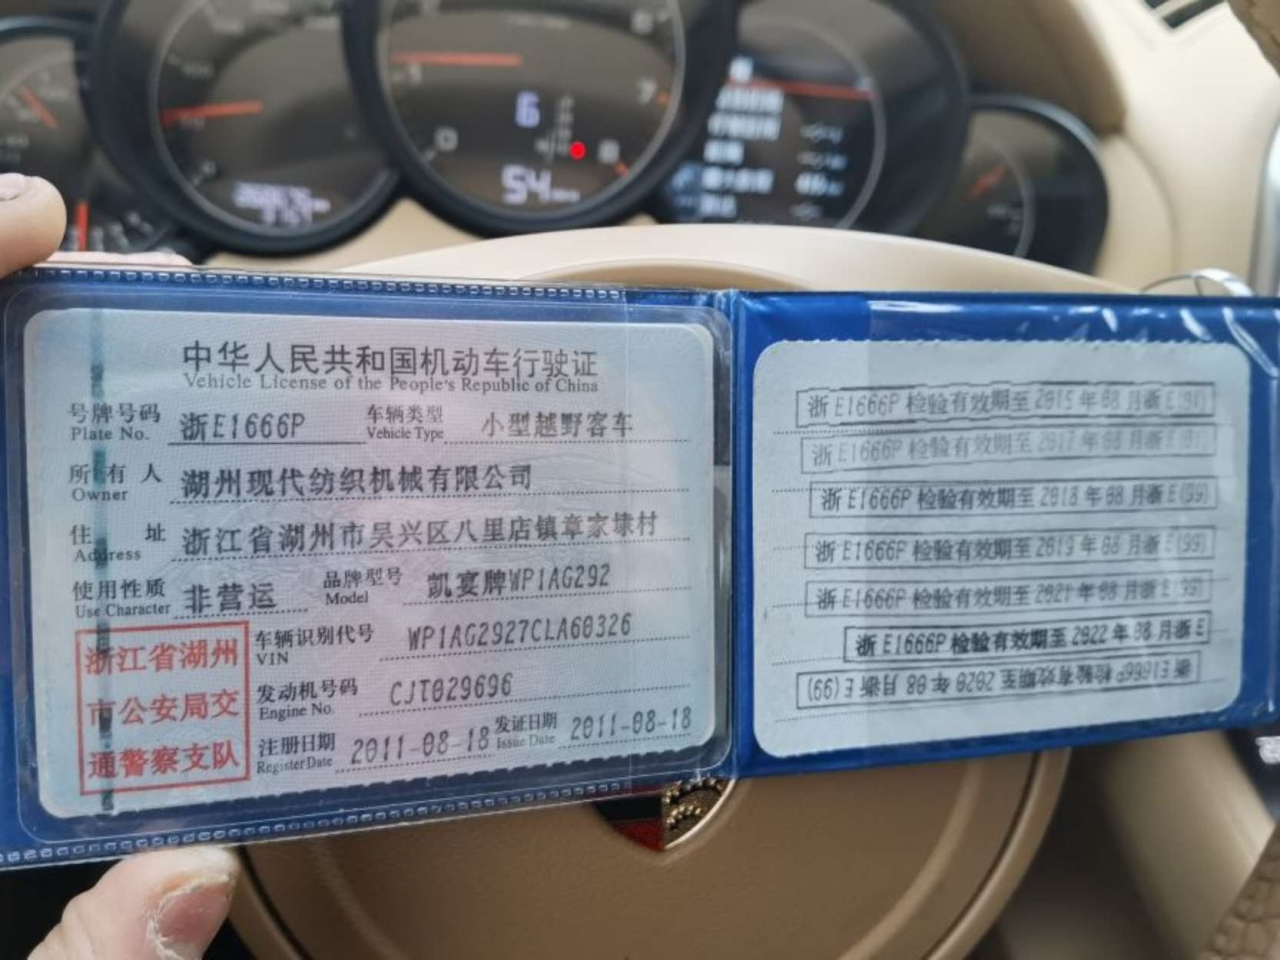 中华人民共和国机动车行驶证
Vehicle License of the People's Republic of China
号牌号码 浙E1666P 车辆类型 小型越野客车
Plate No. Vehicle Type
所有人 湖州现代纺织机械有限公司
Owner
住址 浙江省湖州市吴兴区八里店镇章家埭村
Address
使用性质 非营运 品牌型号 凯宴牌WP1AG292
Use Character Model
浙江省湖州
市公安局交
通警察支队
车辆识别代号 WP1AG2927CLA60326
VIN
发动机号码 CJT029696
Engine No.
注册日期 2011-08-18 发证日期 2011-08-18
Register Date Issue Date
浙E1666P 检验有效期至 2015年08月浙E(91)
浙E1666P 检验有效期至 2017年08月浙E(91)
浙E1666P 检验有效期至 2018年08月浙E(99)
浙E1666P 检验有效期至 2019年08月浙E(99)
浙E1666P 检验有效期至 2021年08月浙E(99)
浙E1666P 检验有效期至 2022年08月浙E
浙E1666P 检验有效期至 2020年08月浙E(99)
6
7
0
8
54